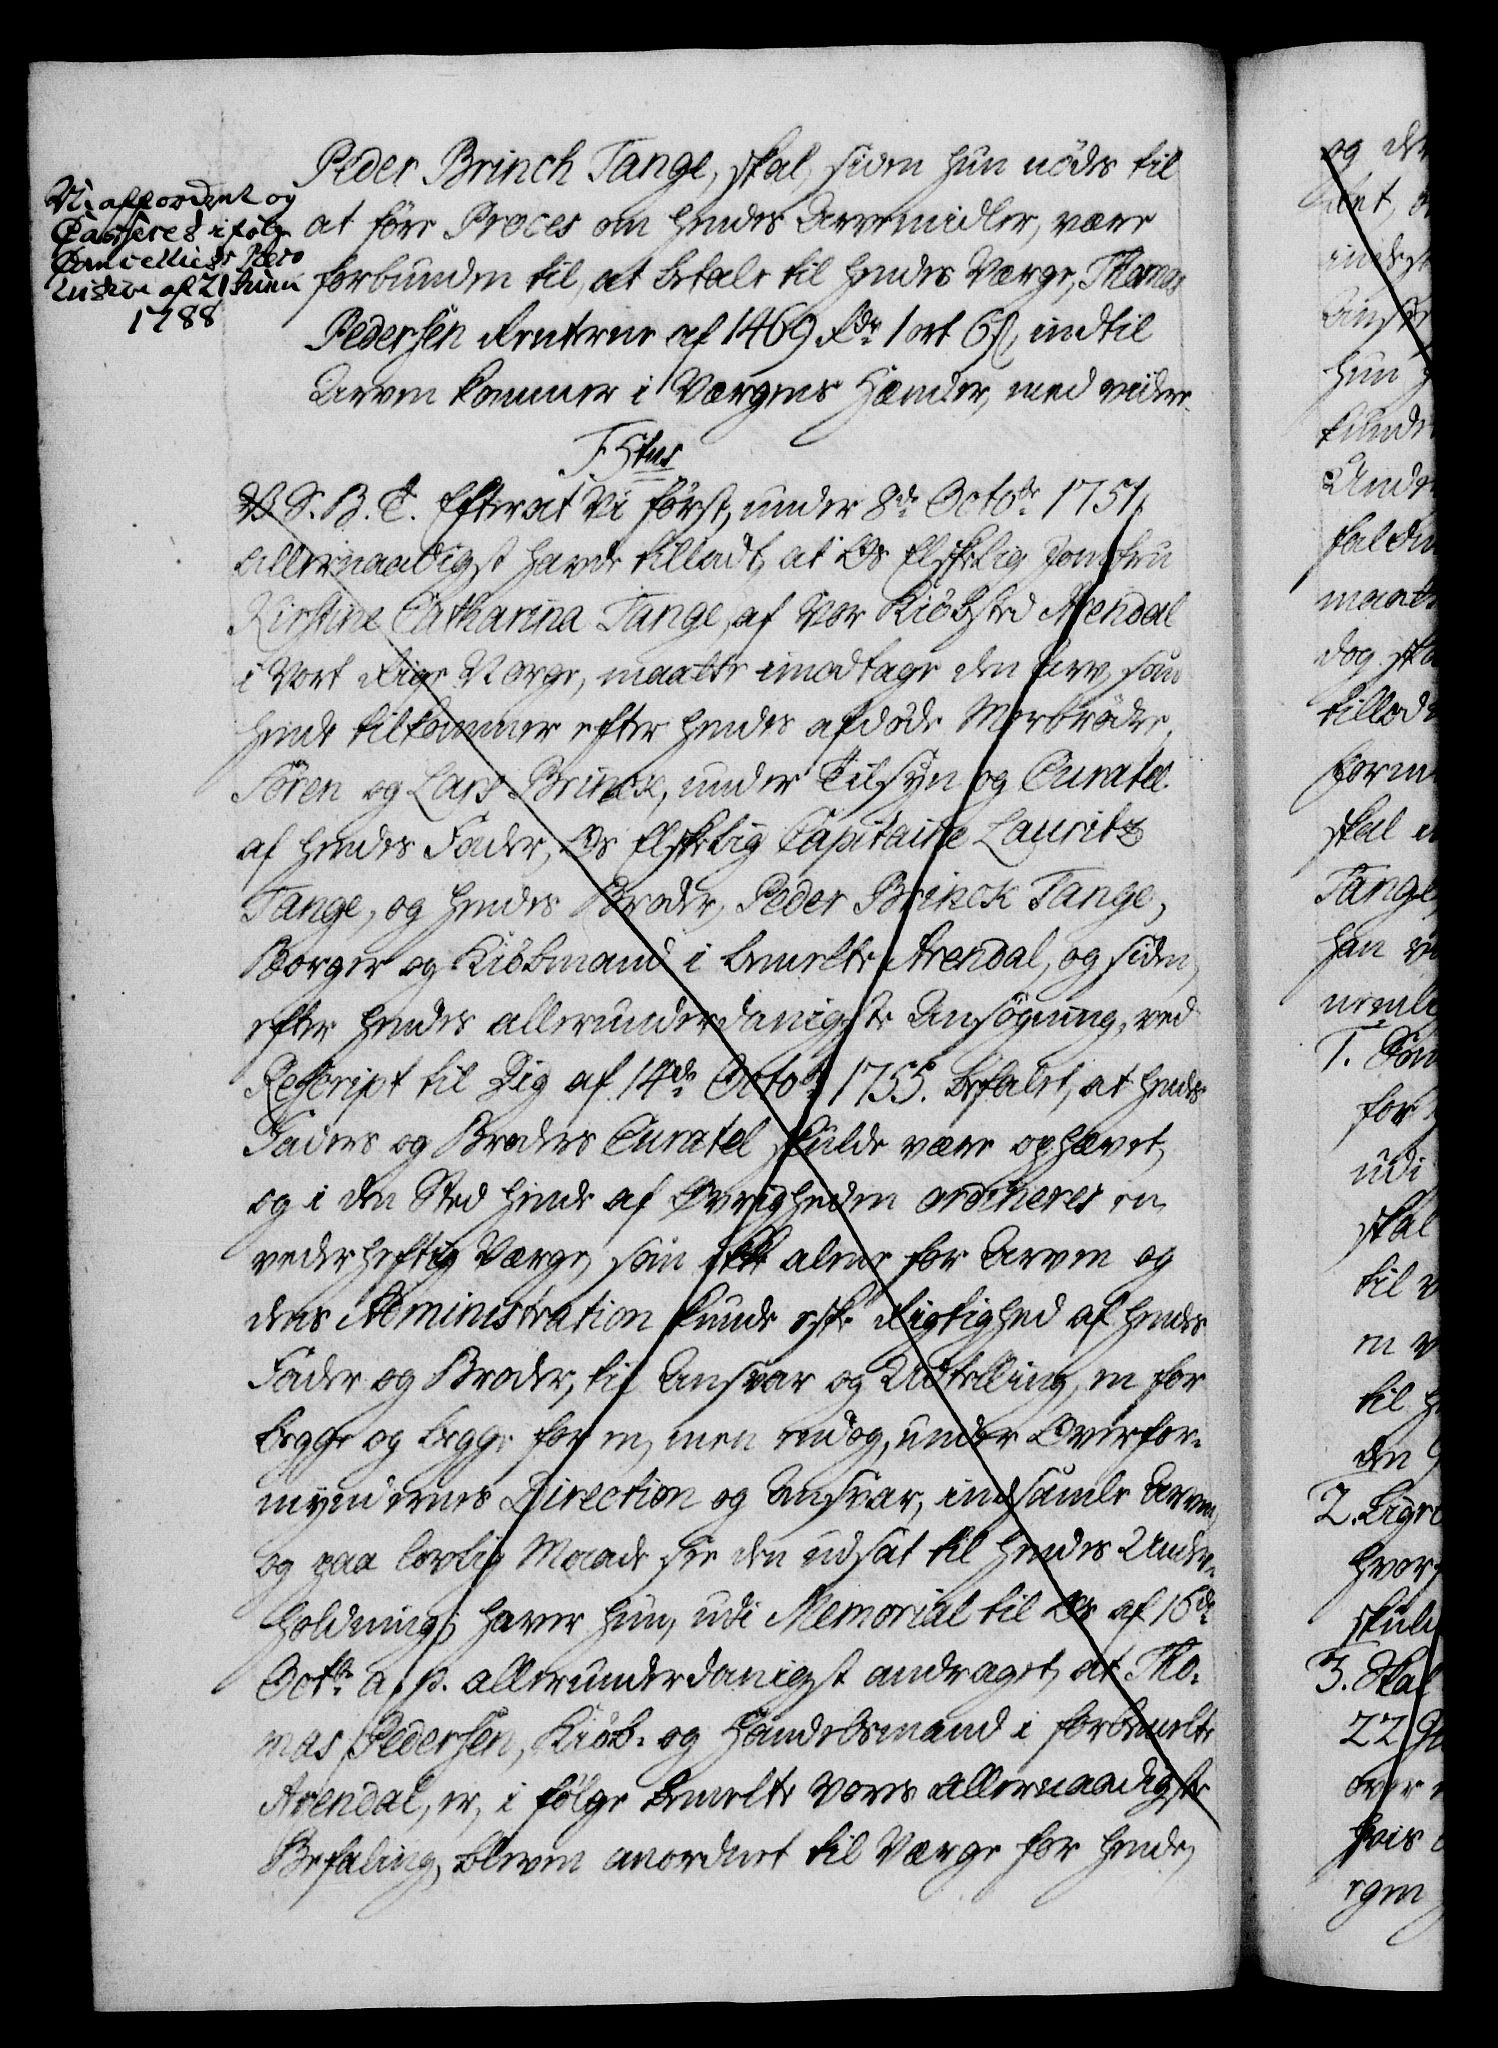 Peder Brinch Tange, skal, siden hun nødes til
at føre Proces om hendes Arvemidler, være
forbunden til, at betale til hendes Værge, Thomas
Pedersen Renterne af 1469 Rdr 1 ort 6 s, indtil
Arven kommer i Værgens Hænder, med videre.
affordret og
Casseres ifølge
Cancelliets Pro
af 21 Junii
1788
F. Stus
V. S. B. T. Efter at Vi først, under 8de Octobr 1751,
allernaadigst havde tilladt, at Os Elskelig Jomfru
Kirstine Catharina Tange, af Vor Kiøbsted Arendal
i Vort Rige Norge, maatte imodtage den Arv, som
hende tilkommer efter hendes afdøde Morbrødre,
Søren og Lars Brinck, under Tilsyn og Curatel
af hendes Fader, Os Elskelig Capitaine Lauritz
Tange, og hendes Broder, Peder Brinck Tange,
Borger og Kiøbmand i bemelte Arendal, og siden,
efter hendes allerunderdanigste Ansøgning, ved
Rescript til Dig af 14de Octobr 1755. befalet, at hendes
Faders og Broders Curatel skulde være ophævet,
og i den Sted hende af Øvrigheden ordineres en
vederheftig Værge, som ikke alene for Arven og
dens Administration kunde æske Rigtighed af hendes
Fader og Broder, til Ansvar og Udtelling, en for
begge og begge for en, men endog, under Overfor-
myndernes Direction og Ansvar, indsamle Arven,
og paa lovlig Maade see den udsat til hendes Under-
holdning; haver hun, udi Memorial til Os af 16de
Octbr a. p. allerunderdanigst andraget, at Tho-
mas Pedersen, Kiøb- og Handelsmand i forbemelte
Arendal, er, i følge bemelte Vores allernaadigste
Befaling, bleven anordnet til Værge for hende,
og
hun
dog
skal
Tange,
han
1.
for
udi
skal
til
en
til
den
2. Ligel
hvor
3. Skal
22
over
hvis